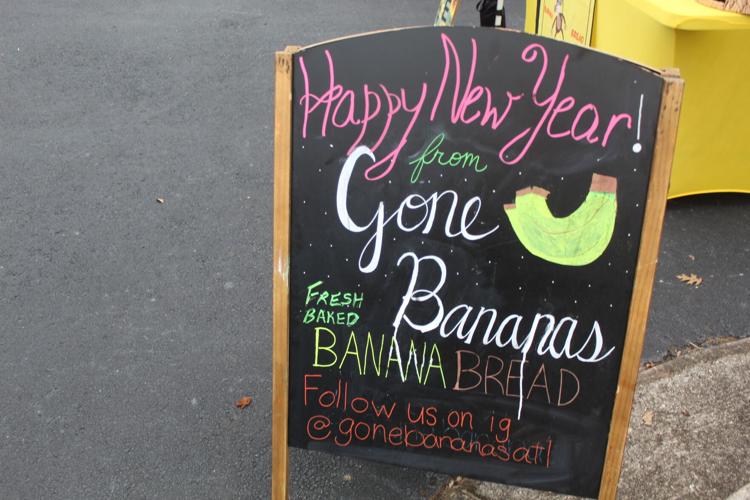 Happy New Year!
from
Gone
Bananas
FRESH
BAKED
BANANA BREAD
Follow us on ig
@gonebananasatl